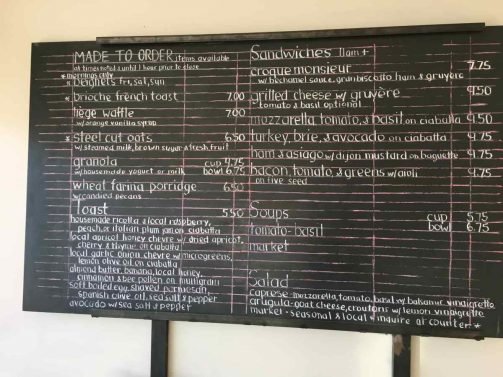 MADE TO ORDER items available
at times noted & until 1 hour prior to close
* mornings only
* beignets fri, sat, sun
* brioche french toast 7.00
liège waffle 7.00
w/ orange vanilla syrup
* steel cut oats 6.50
w/ steamed milk, brown sugar & fresh fruit
granola cup 4.75
w/ housemade yogurt or milk bowl 6.75
wheat farina porridge 6.50
w/ candied pecans
Toast 5.50
housemade ricotta & local raspberry,
peach, or italian plum jam on ciabatta
local apricot honey chevre w/ dried apricot,
cherry & thyme on ciabatta
local garlic onion chevre w/ microgreens,
lemon olive oil on ciabatta
almond butter, banana, local honey,
cinnamon & bee pollen on multigrain
soft boiled egg, shaved parmesan,
spanish olive oil, sea salt & pepper
avocado w/ sea salt & pepper
Sandwiches 11am +
croque monsieur 9.75
w/ bechamel sauce, gran biscotto ham & gruyère
grilled cheese w/ gruyère 9.50
tomato & basil optional
mozzarella, tomato, & basil on ciabatta 9.50
turkey, brie, & avocado on ciabatta 9.75
ham & asiago w/ dijon mustard on baguette 9.75
bacon, tomato, & greens w/ aioli 9.75
on five seed
Soups cup 5.75
tomato-basil bowl 6.75
market
Salad
caprese - mozzarella, tomato, basil w/ balsamic vinaigrette
arugula - goat cheese, croutons w/ lemon vinaigrette
market - seasonal & local * inquire at counter *